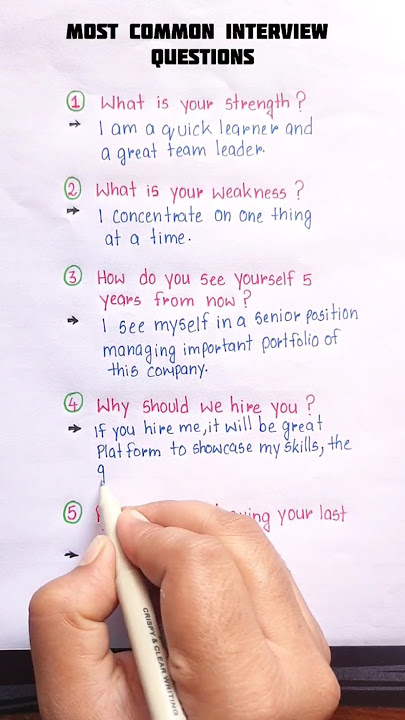 MOST COMMON INTERVIEW
QUESTIONS
1 What is your strength?
→ I am a quick learner and
a great team leader.
2 What is your weakness?
→ I concentrate on one thing
at a time.
3 How do you see yourself 5
years from now?
→ I see myself in a senior position
managing important portfolio of
this company.
4 Why should we hire you?
→ If you hire me, it will be great
Platform to showcase my skills, the
g
5 your last
→
CRISPY & CLEAR WRITING